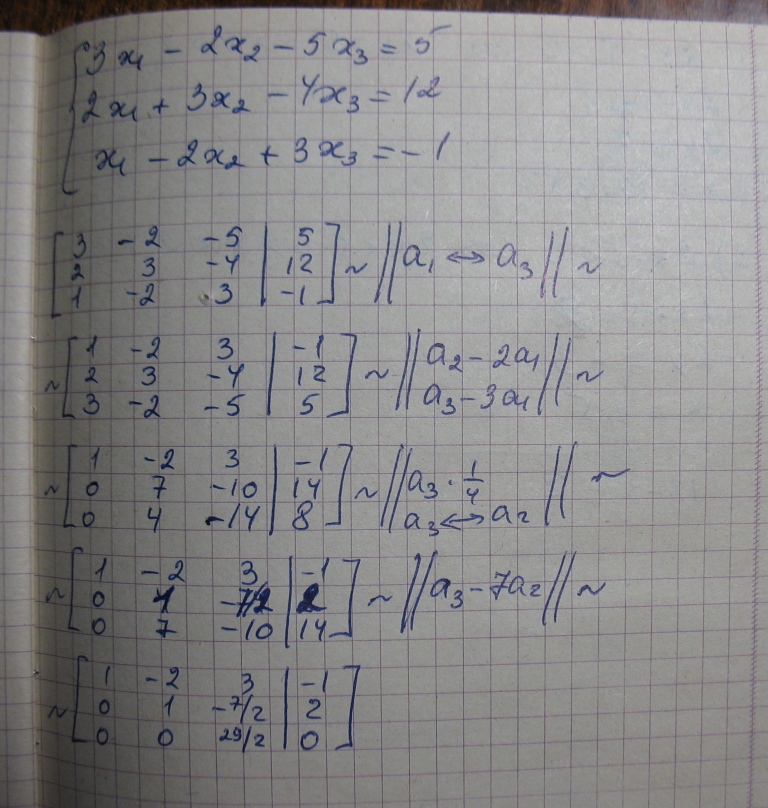 3x₁ - 2x₂ - 5x₃ = 5
2x₁ + 3x₂ - 4x₃ = 12
x₁ - 2x₂ + 3x₃ = -1
[3 -2 -5 | 5
2 3 -4 | 12
1 -2 3 | -1] ~ ||a₁ ↔ a₃|| ~
~ [1 -2 3 | -1
2 3 -4 | 12
3 -2 -5 | 5] ~ ||a₂ - 2a₁
a₃ - 3a₁|| ~
~ [1 -2 3 | -1
0 7 -10 | 14
0 4 -14 | 8] ~ ||a₃ · 1/4
a₃ ↔ a₂|| ~
~ [1 -2 3 | -1
0 1 -7/2 | 2
0 7 -10 | 14] ~ ||a₃ - 7a₂|| ~
~ [1 -2 3 | -1
0 1 -7/2 | 2
0 0 29/2 | 0]